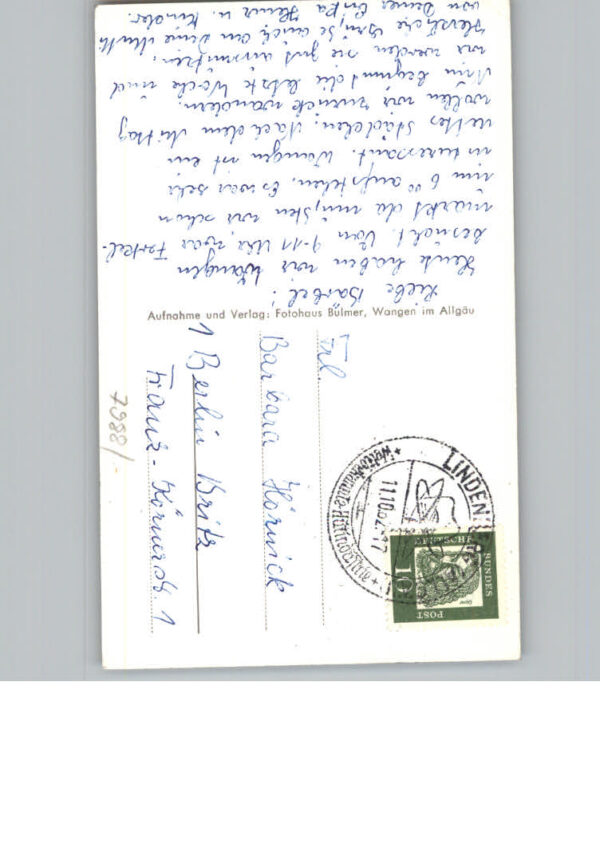 Liebe Bärbel!
Heute haben wir Wangen
besucht. Von 9-11 Uhr war Ferkel-
markt da mußten wir schon
um 6⁰⁰ aufstehen. Es war sehr
interessant. Wangen ist ein
nettes Städtchen. Nach dem Mittag
wollen wir zurück wandern.
Nun beginnt die letzte Woche und
wir werden sie gut ausnutzen.
Herzliche Grüße auch an Deine Mutti
von Deiner Erika u. Kinder.
Aufnahme und Verlag: Fotohaus Bulmer, Wangen im Allgäu
Frl.
Barbara Hörnick
1 Berlin Britz
Franz-Körnerstr. 1
7988/-
LINDENBERG
11.10.62-17
DEUTSCHE
BUNDES
POST
10